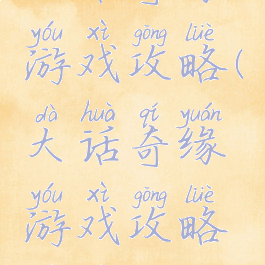 yóu xì gōng lüè
游戏攻略(
dà huà qí yuán
大话奇缘
yóu xì gōng lüè
游戏攻略